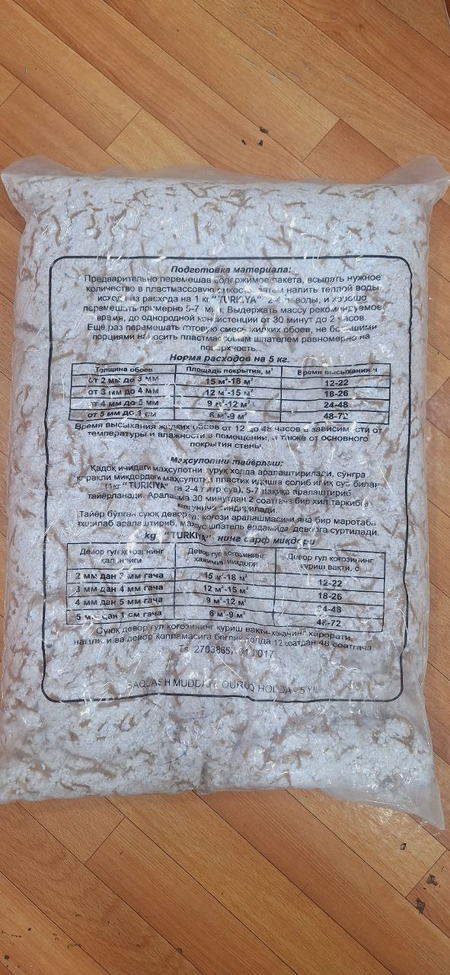 Подготовка материала:
Предварительно перемешав содержимое пакета, всыпать нужное
количество в пластмассовую емкость, затем налить теплой воды
исходя из расхода на 1 кг "TURKIYA" 2-4 л воды, и хорошо
перемешать примерно 5-7 м. Выдержать массу рекомендуемое
время, до однородной консистенции от 30 минут до 2 часов.
Ещё раз перемешать готовую смесь жидких обоев, не большими
порциями наносить пластмассовым шпателем равномерно на
поверхность.
Норма расходов на 5 кг.
Толщина обоев Площадь покрытия, м² Время высыхания ч
от 2 мм до 3 мм 15 м²-18 м² 12-22
от 3 мм до 4 мм 12 м²-15 м² 18-26
от 4 мм до 5 мм 9 м²-12 м² 24-48
от 5 мм до 1 см 6 м²-9 м² 48-72
Время высыхания жидких обоев от 12 до 48 часов в зависимости от
температуры и влажности в помещении, а также от основного
покрытия стены.
Маҳсулотни тайёрлаш:
Қадоқ ичидаги маҳсулотни қуруқ холда аралаштирилади, сўнгра
керакли миқдордаги маҳсулотни пластик идишга солиб илиқ сув билан
(1кг "TURKIYA" га 2-4 литр сув), 5-7 дақиқа аралаштириб
тайёрланади. Аралашма 30 минутдан 2 соатгача бир хил таркибга
келгунича тиндирилади.
Тайёр бўлган суюқ девор гул қоғози аралашмасини яна бир маротаба
яхшилаб аралаштириб, махсус шпатель ёрдамида деворга суртилади.
kg "TURKIYA" нинг сарф миқдори
Девор гул қоғозининг Девор гул қоғозининг Девор гул қоғозининг
қалинлиги қуриш вакти, с
2 мм дан 3 мм гача 15 м²-18 м² 12-22
3 мм дан 4 мм гача 12 м²-15 м² 18-26
4 мм дан 5 мм гача 9 м²-12 м² 24-48
5 мм дан 1 см гача 6 м²-9 м² 48-72
Суюқ девор гул қоғозининг қуриш вакти хонанинг харорати,
намлиги ва девор қопламасига боғлиқ холда 12 соатдан 48 соатгача
Ts 2703865 2017
SAQLASH MUDDATI QURUQ HOLDA - 5 YIL